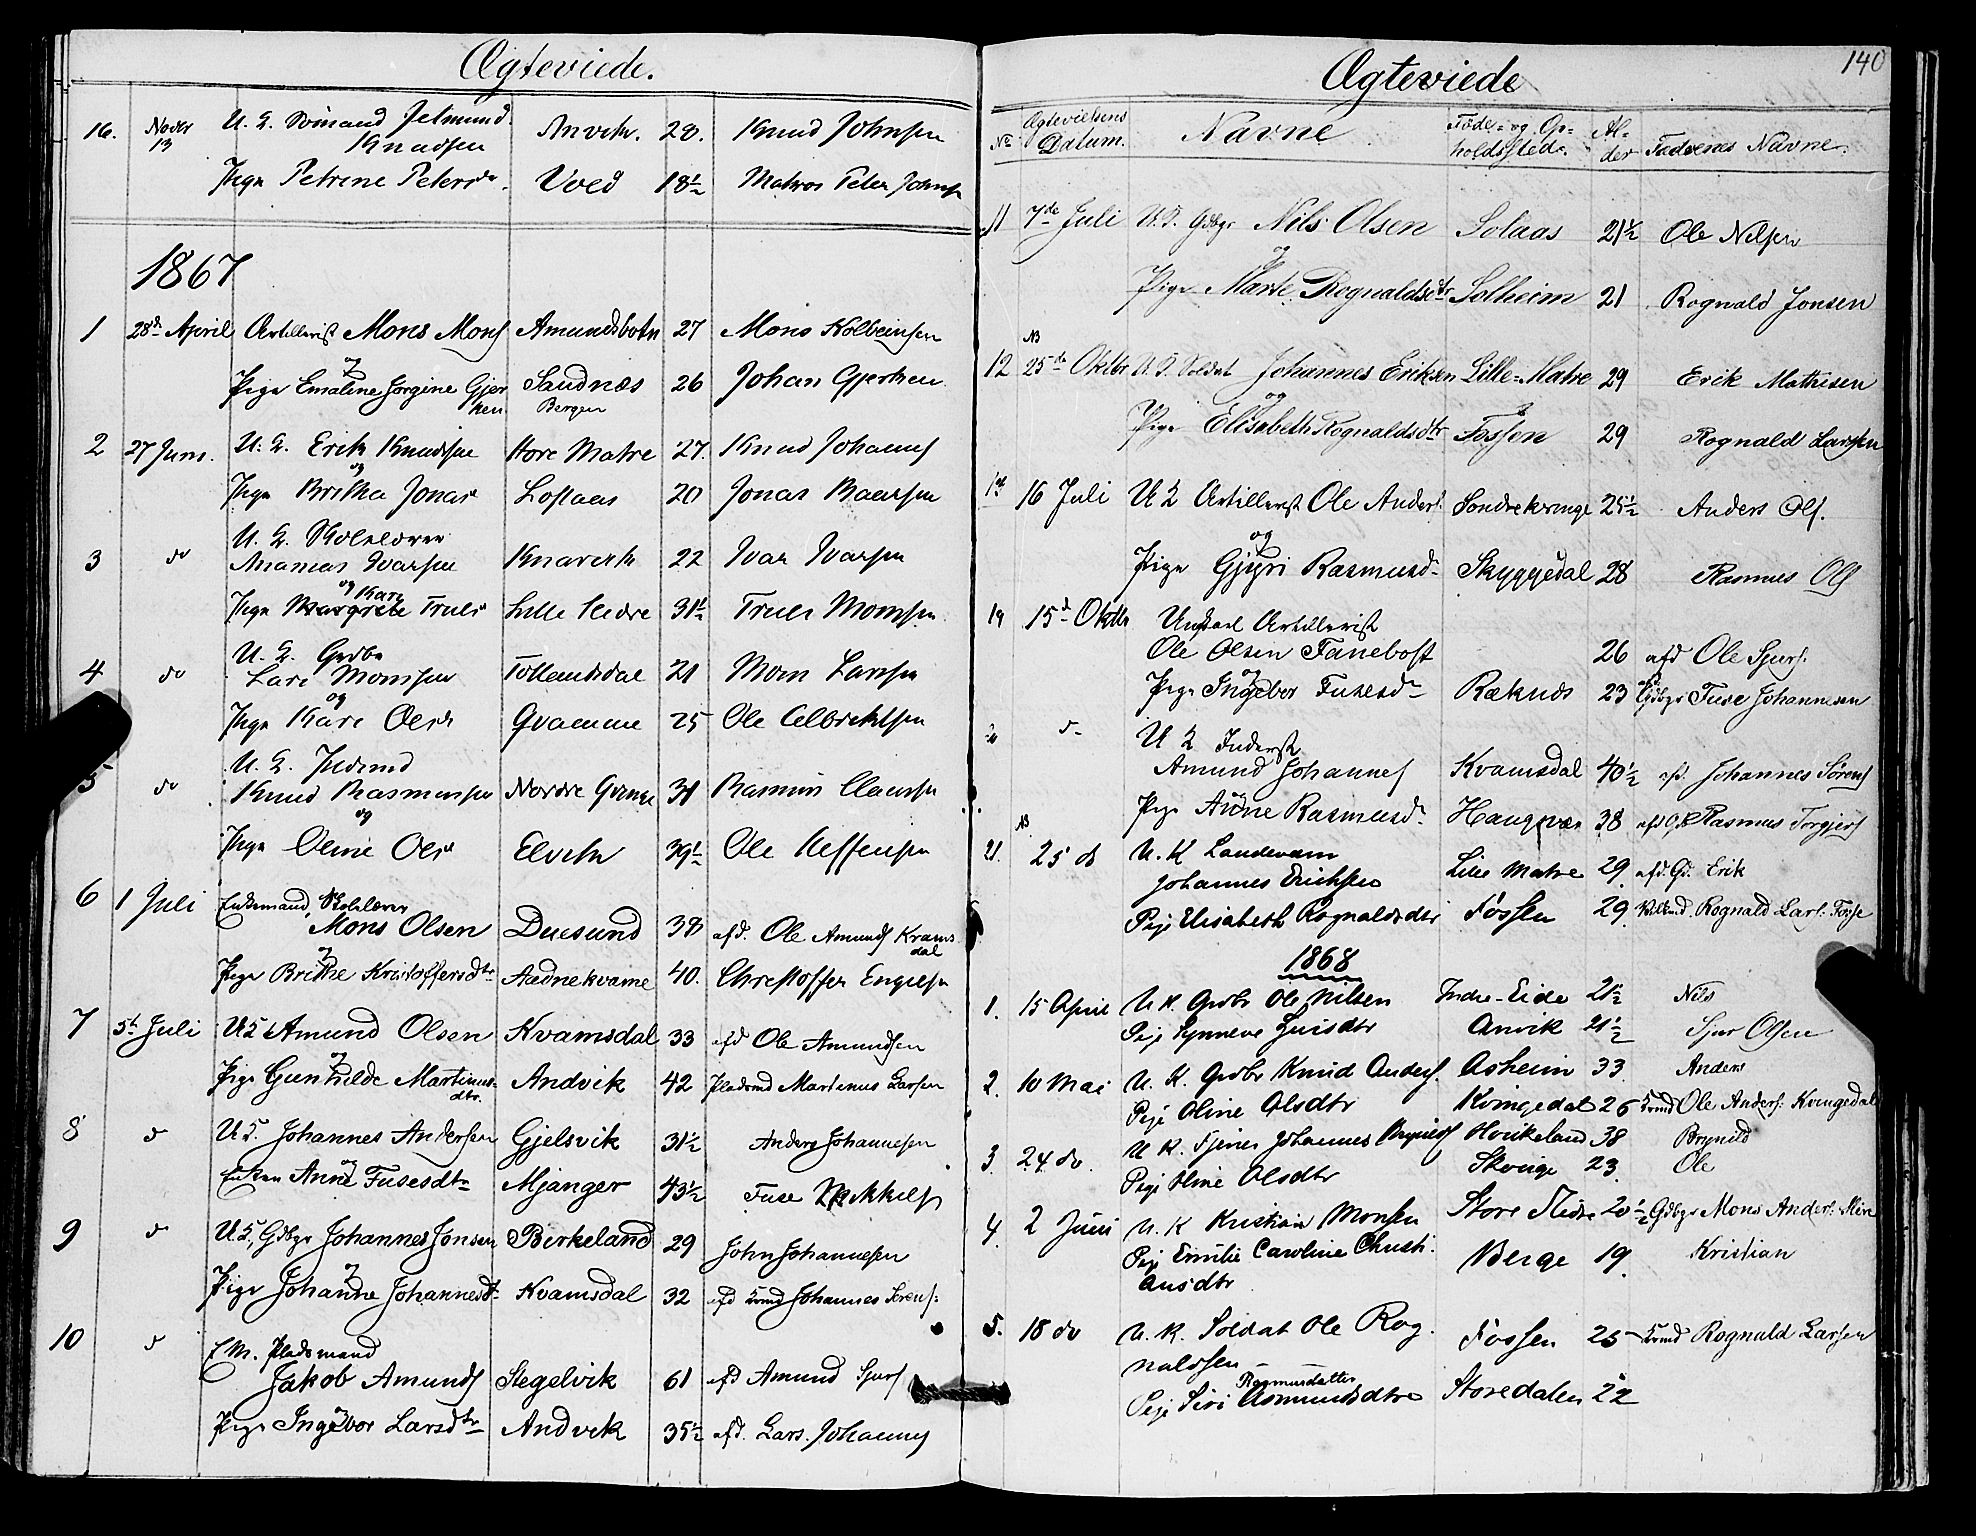 Ægteviede.
16. Novbr 13 U. K. Jetmund Knudsen Anvik. 28. Knud Johnsen
Pige Petrine Petersdr. Voed 18½ Matros Peter Johns
1867
1 28de April Artillerist Mons Mons Amundsbotn 27 Mons Kolbeinsen
og
Pige Emaline Jorgine Gjertsen Sandnæs Bergen 26 Johan Gjertsen
2 27 Juni. U: K. Erik Knudsen Store Matre 27. Knud Johannes
og
Pige Britha Jonasdr Loslaas 20 Jonas Baarsen
3 do U. K. Skolelærer
Ananias Ivarsen Knarvik 22 Ivar Ivarsen
og Kari
Pige Margrete Truls Lille 31½ Truls Monsen
4 do U. K. Grdbr
Lars Monsen Tollensdal 21 Mons Larsen
og
Pige Kari Olsdr Qvamme 25 Ole Albrektsen
5 do U. K. Inderst
Knud Rasmussen Nordre Qvinge 31 Rasmus Claussen
og
Pige Oline Olsdr Elvik 39½ Ole Steffensen
6 1 Juli Enkemand, Skolelærer
Mons Olsen Duesund 38 afd. Ole Amunds Kvamsdal
og
Pige Brithe Kristoffersdtr Aadnekvame 40. Christoffer Engelsen
7 5t Juli UK Amund Olsen Kvamsdal 33 afd Ole Amundsen
og
Pige Gunhilde Martinusdtr. Andvik 42 Pladsmd Martinus Larsen
8 do UK. Johannes Andersen Gjelsvik 31½ Anders Johannesen
og
Enken Anne Fusesdtr Mjanger 43½ Fuse Mikkels
9 do UK, Gdbgr Johannes Jonsen Birkeland 29 John Johannesen
og
Pige Johanne Johannesdtr Kvamsdal 32 afd Brmd Johannes Sørens:
10 do E.M. Pladsmand
Jakob Amunds Slegelvik 61 afd Amund Sjurs
Pige Ingebor Larsdtr Andvik 35½ afd. Lars Johannes
140
Ægteviede
No Ægtevielsens Datum. Navne Føde- og Opholdssted. Alder Fædrenes Navne.
11 7de Juli U.K. Gdbgr Nils Olsen Solaas 21½ Ole Nilsen
og
Pige Marte Rognaldsdtr Solheim 21 Rognald Jonsen
NB
12 25de Oktbr U.K. Soldat Johannes Eriksen Lille-Matre 29 Erik Mathisen
og
Pige Elisabeth Rognaldsdtr Fossen 29 Rognald Larsen
16 Juli U K Artillerist Ole Anders. Søndrekvinge 25½ Anders Ols.
og
Pige Gjyri Rasmusdr Skyggedal 28 Rasmus Ols
19 15d Oktbr Ungkarl Artillerist
Ole Olsen Tanebost 26 afd Ole Sjurs.
og
Pige Ingebor Fusesdr Ræknes 23 Gdbgr Fuse Johannesen
do U K Inderst
Amund Johannes Kvamsdal 40½ afd. Johannes Sørens
Pige Anne Rasmusdr. Haugsvær 38 afd Rasmus Torgjers
NB
21. 25 do U.K Landeværn
Johannes Erichsen Lille Matre 29. afd. Gd. Erik
Pige Elisabeth Rognaldsdtr Fossen 29. Rognald Lars. Fosse
1868
1. 15 April U K. Grdbr Ole Nilsen Indre-Eide 21½ Nils
Pige Synneve Sjursdtr Anvik 21½ Sjur Olsen
2. 10 Mai U. K. Grdbr Knud Anders. Asheim 33. Anders
Pige Oline Olsdtr Kvingedal 26 Brmd Ole Anders. Kvingedal
3. 24 do. U K. Tjener Johannes Brynilds Hovikeland 38 Brynild
Pige Oline Olsdtr Skvige 23. Ole
4. 2 Juni U. K Kristian Monsen Store 20½ Gdbgr Mons Anders.
Pige Emilie Caroline Christiansdtr Berge 19. Kristian
5. 18 do U. K. Soldat Ole Rognaldsen Fossen 25 Brmd Rognald Larsen
Rasmusdatter
Pige Siri Asmundsdtr Storedalen 22